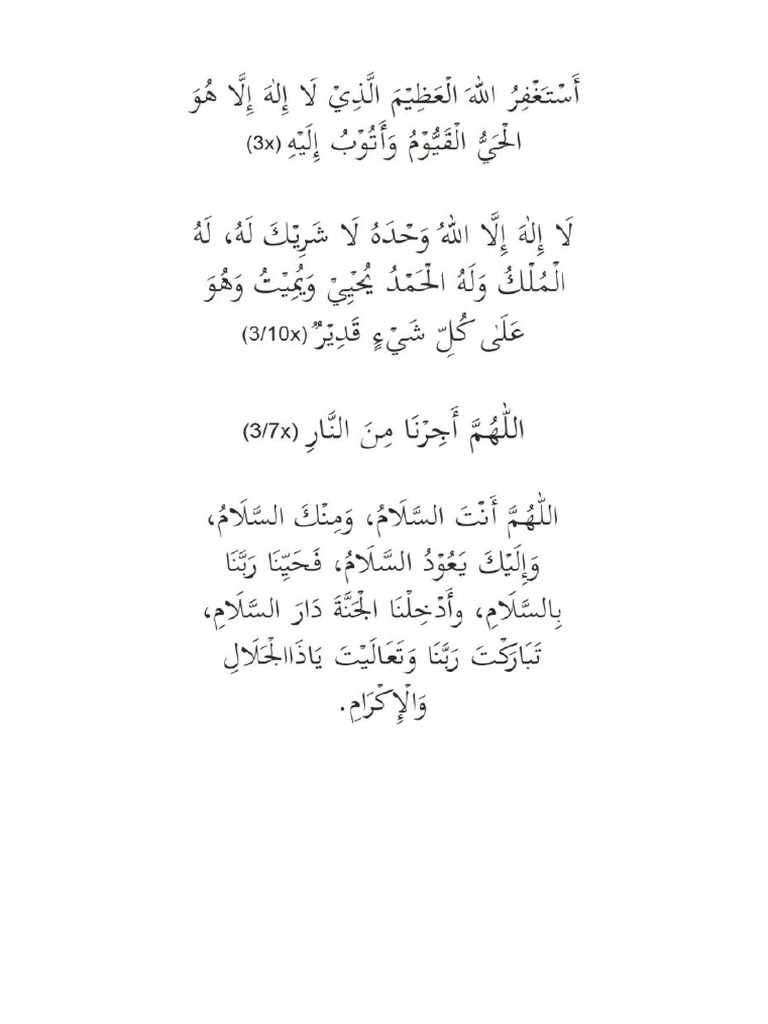 أَسْتَغْفِرُ اللهَ الْعَظِيْمَ الَّذِيْ لَا إِلٰهَ إِلَّا هُوَ
الْحَيُّ الْقَيُّوْمُ وَأَتُوْبُ إِلَيْهِ (3x)
لَا إِلٰهَ إِلَّا اللهُ وَحْدَهُ لَا شَرِيْكَ لَهُ، لَهُ
الْمُلْكُ وَلَهُ الْحَمْدُ يُحْيِيْ وَيُمِيْتُ وَهُوَ
عَلَى كُلِّ شَيْءٍ قَدِيْرٌ (3/10x)
اللّٰهُمَّ أَجِرْنَا مِنَ النَّارِ (3/7x)
اللّٰهُمَّ أَنْتَ السَّلَامُ، وَمِنْكَ السَّلَامُ،
وَإِلَيْكَ يَعُوْدُ السَّلَامُ، فَحَيِّنَا رَبَّنَا
بِالسَّلَامِ، وأَدْخِلْنَا الْجَنَّةَ دَارَ السَّلَامِ،
تَبَارَكْتَ رَبَّنَا وَتَعَالَيْتَ يَاذَاالْجَلَالِ
وَالْإِكْرَامِ.